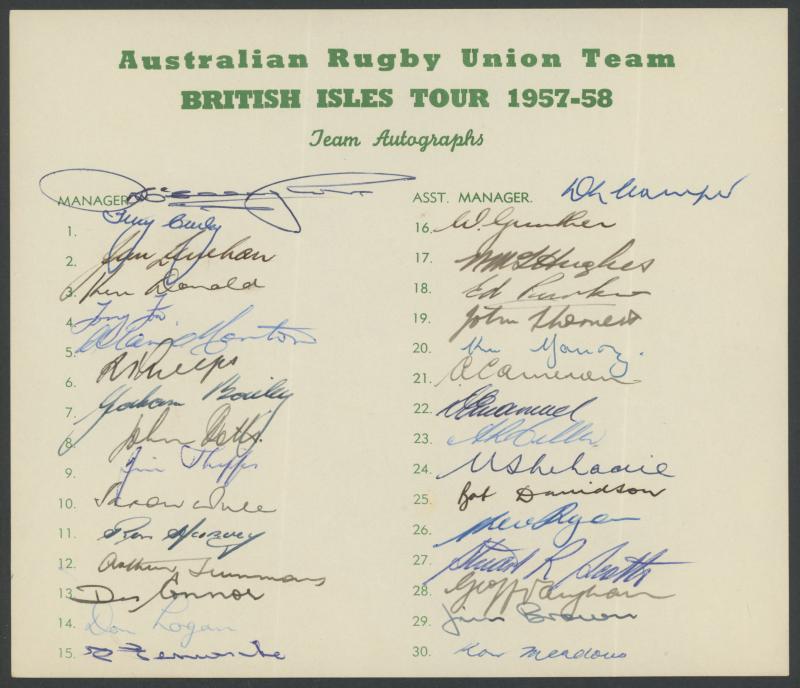 Australian Rugby Union Team
BRITISH ISLES TOUR 1957-58
Team Autographs
MANAGER
1. Terry Curley
2. Jim Lenehan
3. Ken Donald
4. Tony Fox
5. Morton
6. R Phelps
7. Graham Bailey
8. John Potts
9. Jim Phipps
10. Saxon White
11. Ron Harvey
12. Arthur Summons
13. Des Connor
14. Don Logan
15.
ASST. MANAGER.
16. W. Gunther
17. Hughes
18. Ed Purkiss
19. John Thornett
20. Ken Yanz
21. A Cameron
22. Emanuel
23.
24. N Shehadie
25. Bob Davidson
26. Ryan
27. Stuart R. Scotts
28. Geoff Vaughan
29. Jim Brown
30. Ron Meadows